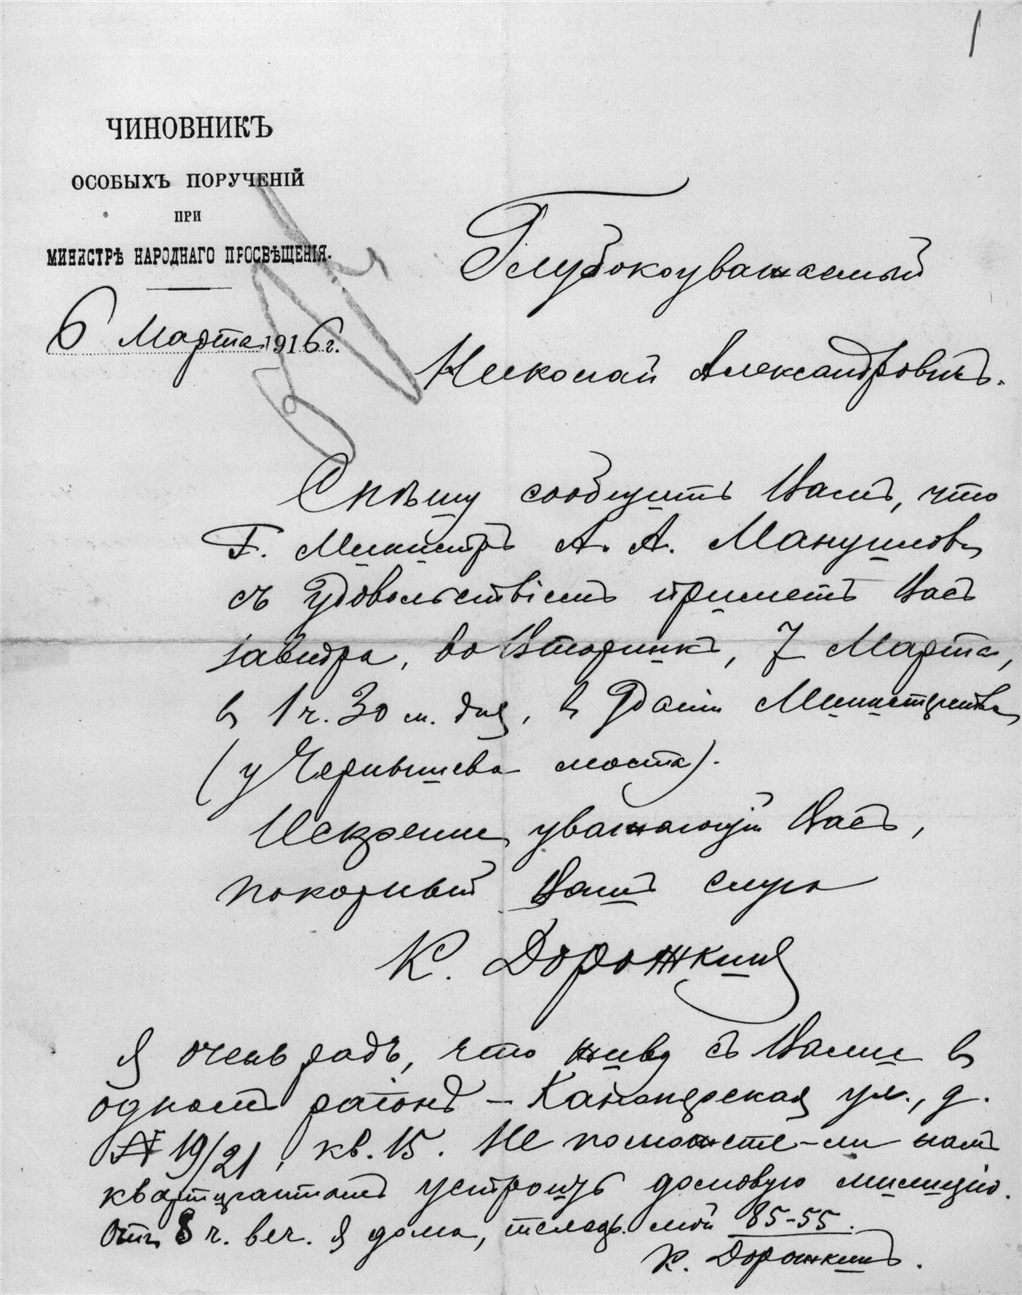 1
ЧИНОВНИКЪ
ОСОБЫХЪ ПОРУЧЕНІЙ
ПРИ
МИНИСТРѢ НАРОДНАГО ПРОСВѢЩЕНІЯ.
6 Марта 1916 г.
Глубокоуважаемый
Николай Александровичъ.
Спѣшу сообщить Вамъ, что
Г. Министръ А. А. Мануиловъ
съ удовольствіемъ приметъ Васъ
завтра, во Вторникъ, 7 Марта,
въ 1 ч. 30 м. дня, въ зданіи Министерства
(у Чернышева моста).
Искренне уважающій Васъ,
покорный Вашъ слуга
К. Дорожкинъ
Я очень радъ, что живу съ Вами въ
одномъ районѣ – Канонерская ул., д.
№ 19/21, кв. 15. Не поможете-ли намъ
квартирантамъ устроить домовую милицію.
Отъ 8 ч. веч. я дома, телеф. мой 85-55.
К. Дорожкинъ.